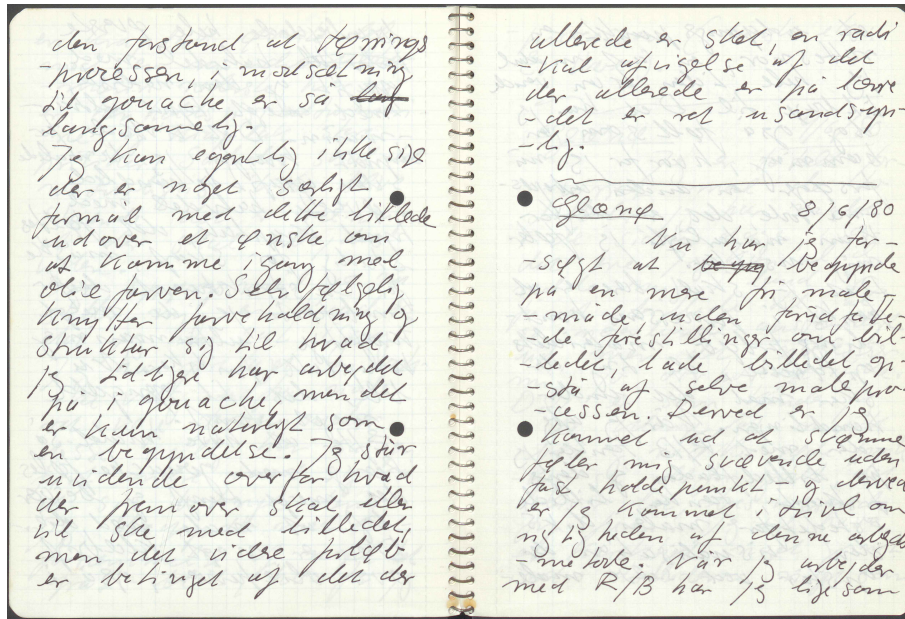 den forstand at tegnings
-processen, i modsætning
til gouache er så lang
langsommelig.
Jeg kan egentlig ikke sige
der er noget særligt
formål med dette billede
udover et ønske om
at komme igang med
olie farven. Selvfølgelig
knytter farveholdning og
struktur sig til hvad
jeg tidligere har arbejdet
på i gouache, men det
er kun naturligt som
en begyndelse. Jeg står
uvidende overfor hvad
der fremover skal eller
vil ske med billedet,
men det videre forløb
er betinget af det der
allerede er sket, en radi
-kal afvigelse af det
der allerede er på lærre
-det er ret usandsyn-
-lig.
Glæng 8/6/80
Nu har jeg for-
-søgt at begynde
på en mere fri male-
-måde uden forudfatte-
-de forestillinger om bil-
-ledet, lade billedet op-
-stå af selve malepro-
-cessen. Derved er jeg
kommet ud at svømme
føler mig svævende uden
fast holdepunkt - og derved
er jeg kommet i tvivl om
rigtigheden af denne arbejds
-metode. Når jeg arbejder
med R/B har jeg ligesom